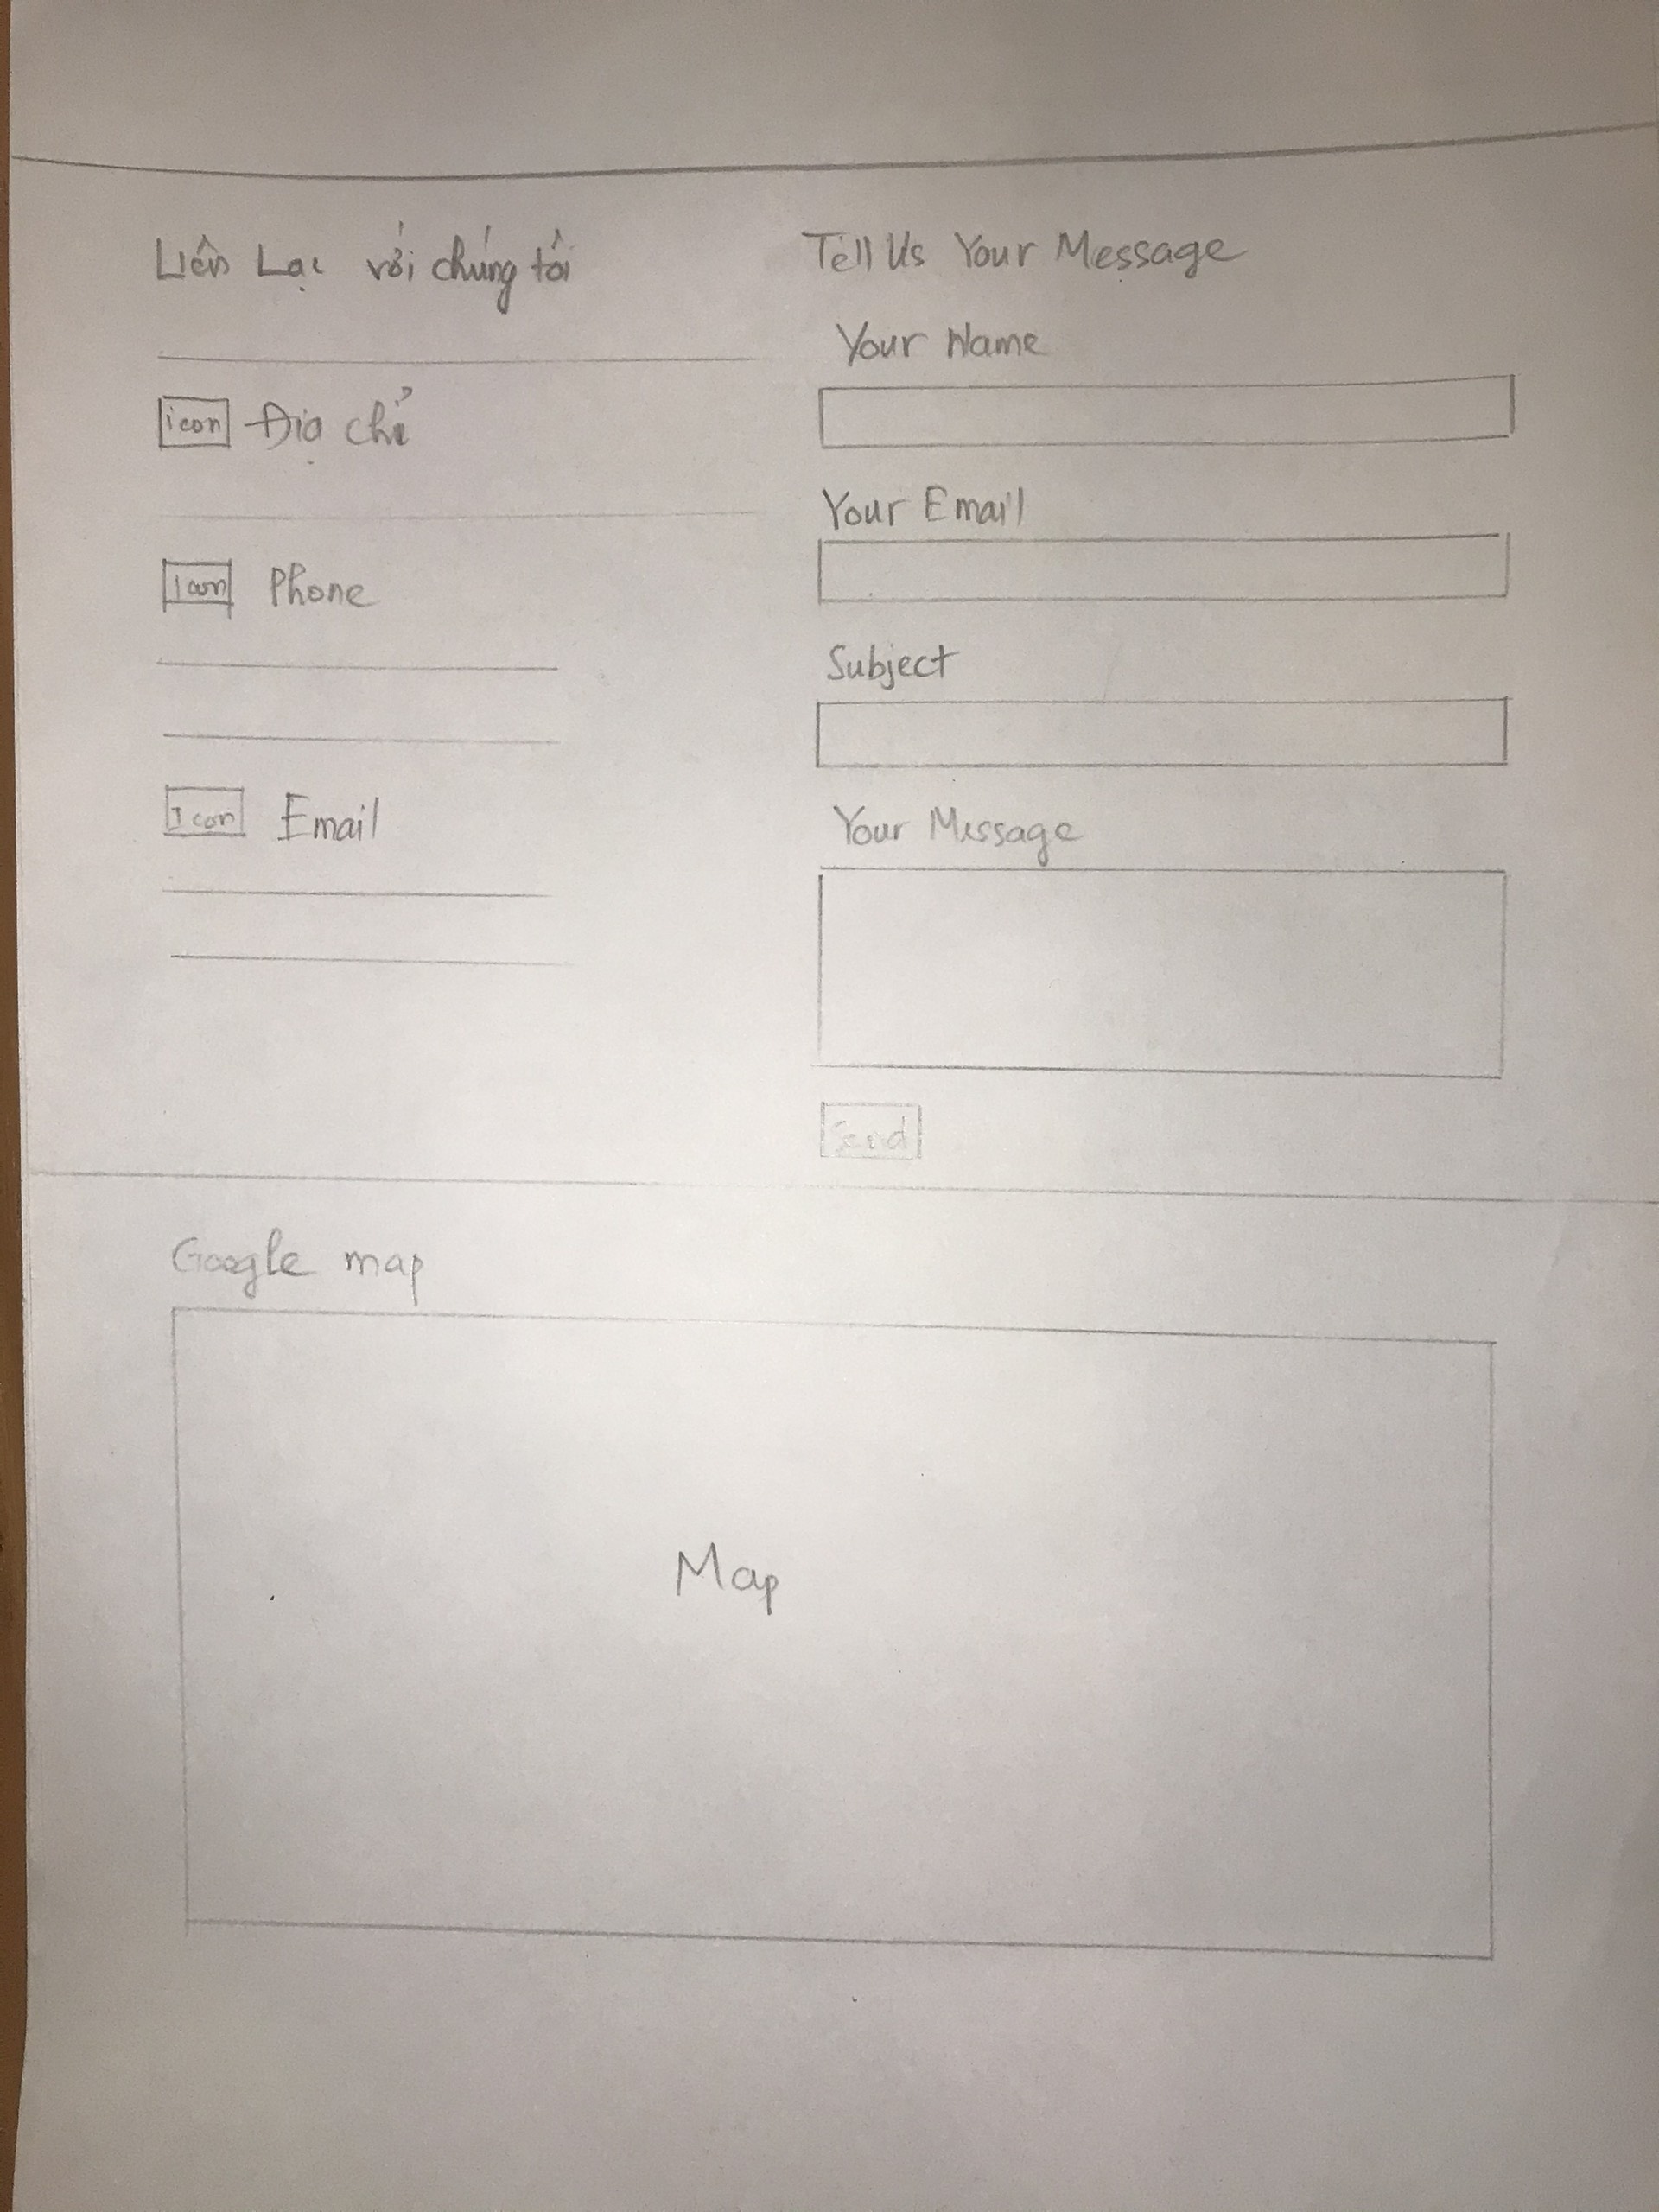 Liên Lạc với chúng tôi
icon Địa chỉ
Icon Phone
Icon Email
Tell Us Your Message
Your Name
Your Email
Subject
Your Message
Send
Google map
Map